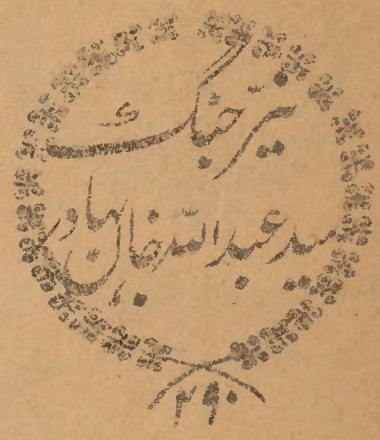 نیّر جنگ
سید عبد اللہ خان بہادر
۲۹۰